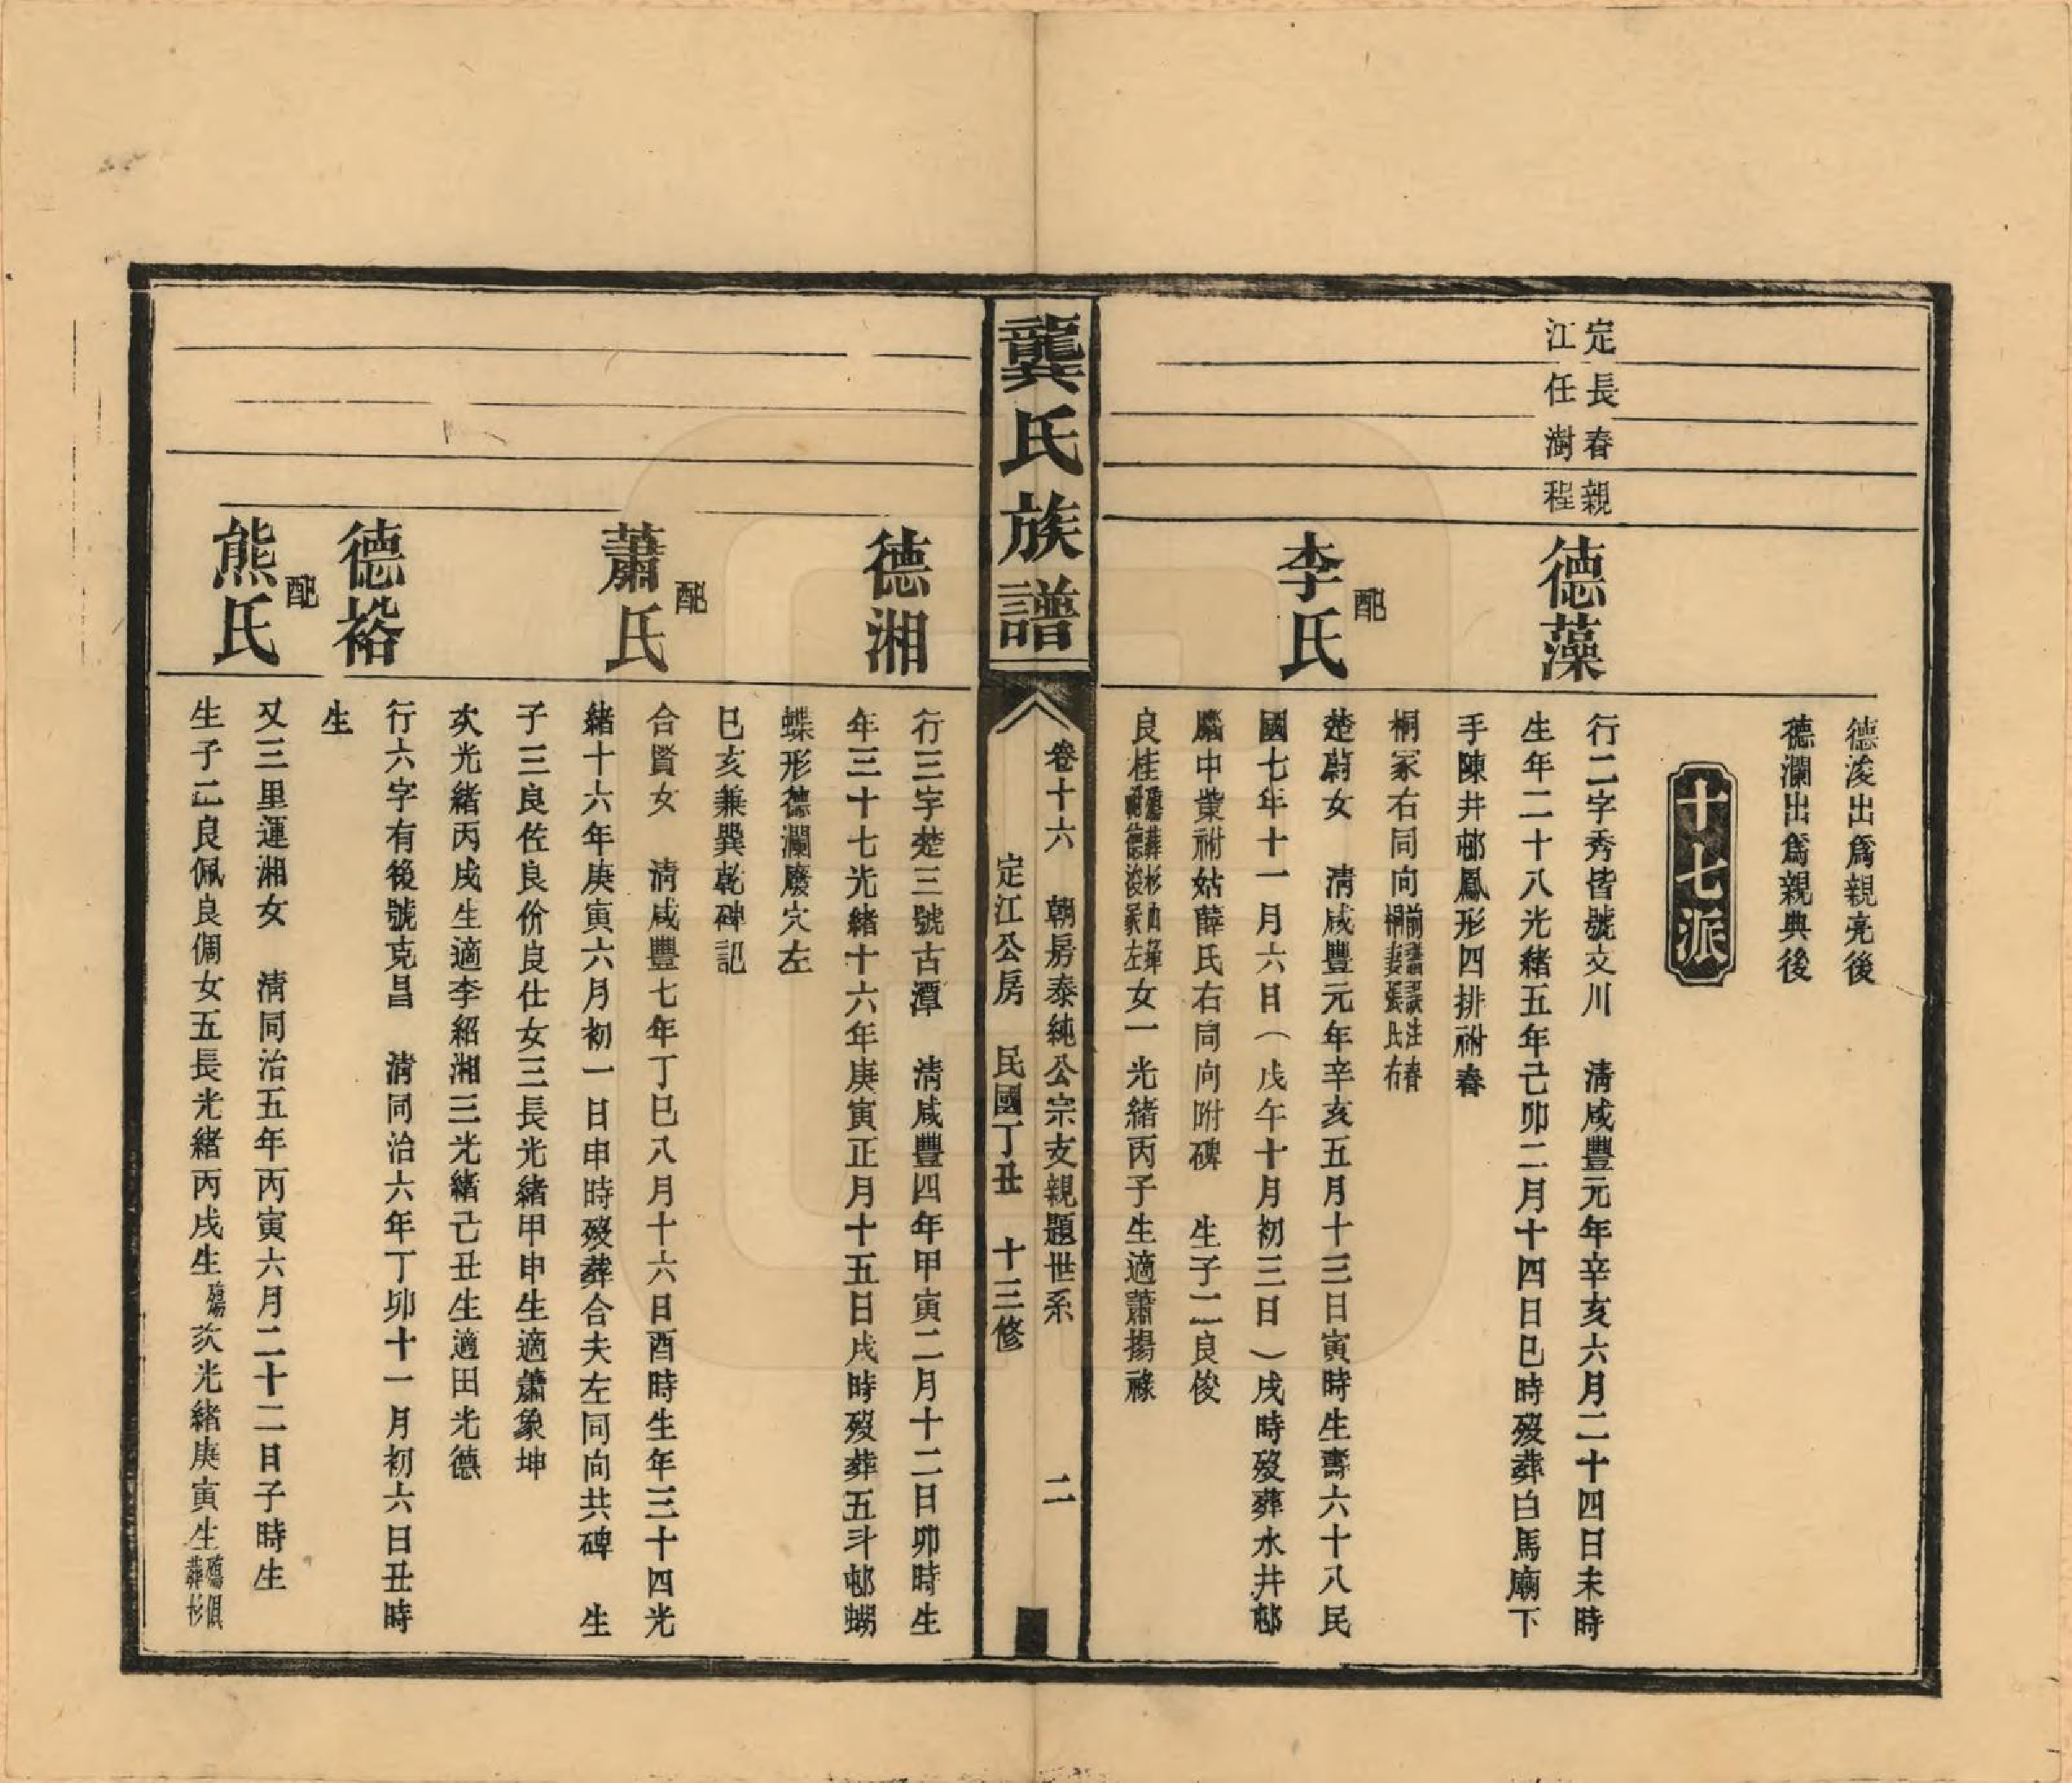 德浚出爲親亮後
德瀾出爲親典後
十七派
定長春親
江任澍程
德藻
行二字秀皆號文川　清咸豐元年辛亥六月二十四日未時
生年二十八光緒五年己卯二月十四日巳時歿葬白馬廟下
手陳井邨鳳形四排祔春
桐冢右同向前譜誤注春
桐妻張氏右
配
李氏
楚蔚女　清咸豐元年辛亥五月十三日寅時生壽六十八民
國七年十一月六日（戊午十月初三日）戌時歿葬水井邨
腦中葉祔姑薛氏右同向附碑　生子二良俊
良桂殤葬杉山嘴
祔德浚冢左女一光緒丙子生適蕭揚祿
龔氏族譜
卷十六　朝房泰純公宗支親題世系　二
定江公房　民國丁丑　十三修
德湘
行三字楚三號古潭　清咸豐四年甲寅二月十二日卯時生
年三十七光緒十六年庚寅正月十五日戌時歿葬五斗邨蝴
蝶形德瀾廢穴左
巳亥兼巽乾碑記
配
蕭氏
合賢女　清咸豐七年丁巳八月十六日酉時生年三十四光
緒十六年庚寅六月初一日申時歿葬合夫左同向共碑　生
子三良佐良价良仕女三長光緒甲申生適蕭象坤
次光緒丙戌生適李紹湘三光緒己丑生適田光德
德裕
行六字有後號克昌　清同治六年丁卯十一月初六日丑時
生
配
熊氏
又三里運湘女　清同治五年丙寅六月二十二日子時生
生子二良佩良倜女五長光緒丙戌生殤次光緒庚寅生殤俱
葬杉